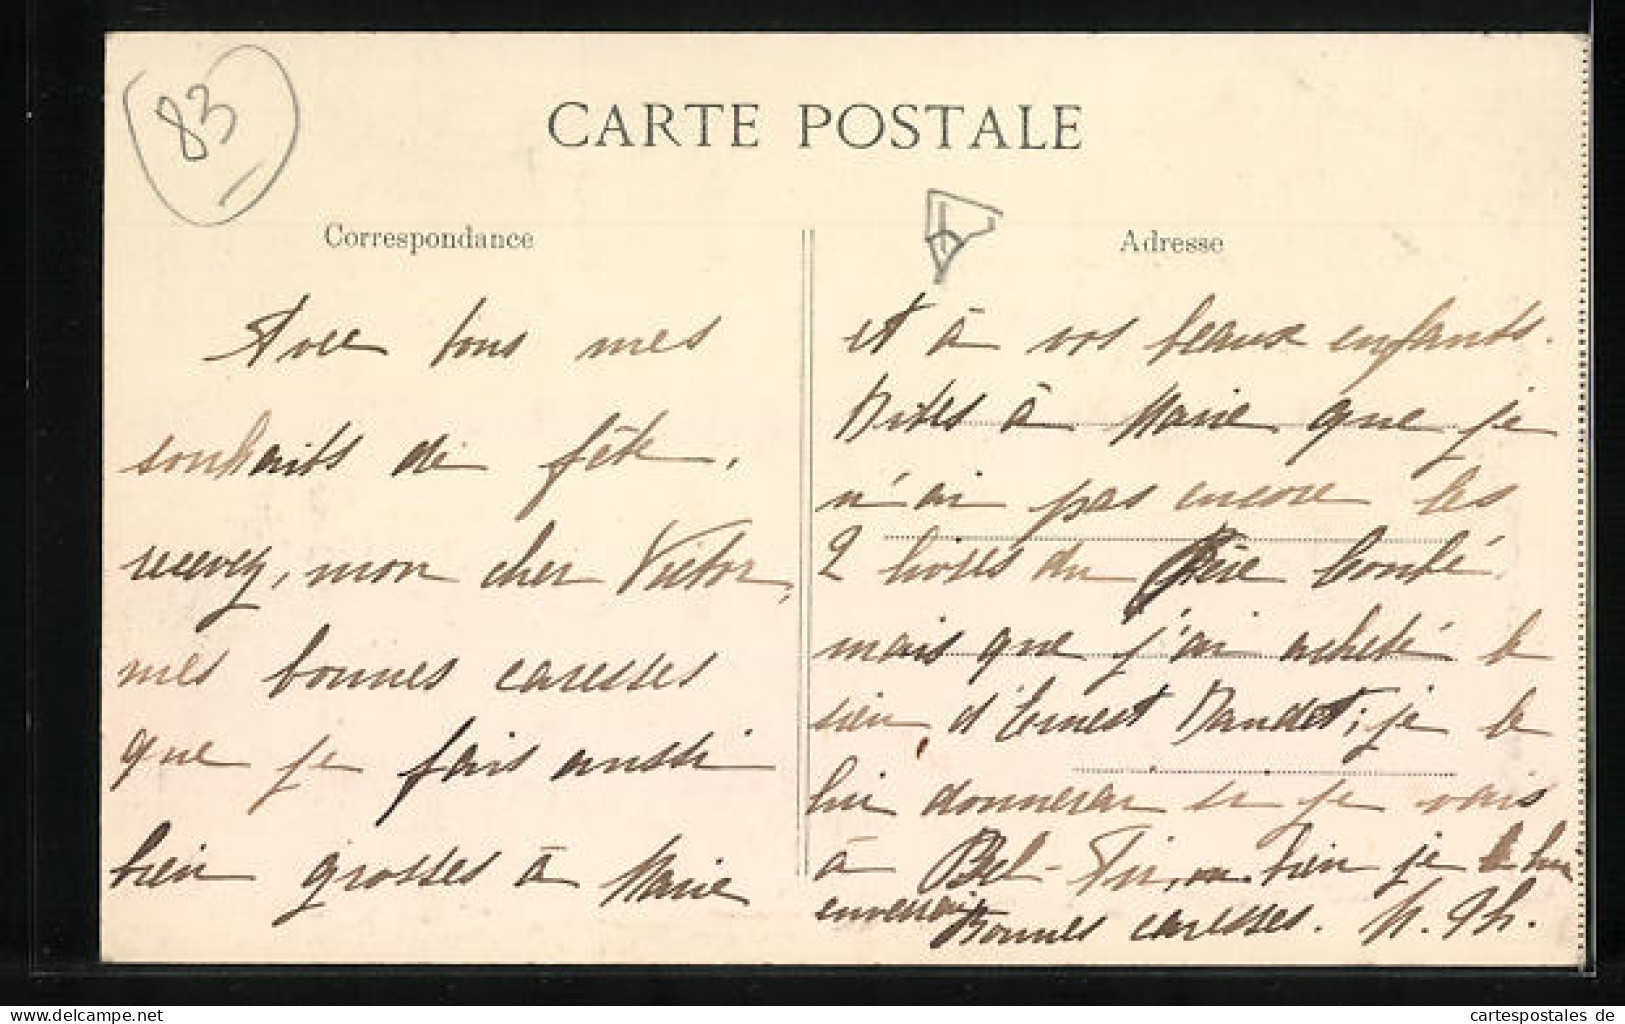 83
CARTE POSTALE
Correspondance
Avec tous mes
souhaits de fête,
recevez, mon cher Victor,
mes bonnes caresses
que je fais aussi
bien grosses à Marie
Adresse
et à vos beaux enfants.
Dites à Marie que je
n'ai pas encore les
2 livres du Père
mais que j'ai acheté le
sien d'Ernest Daudet; je le
lui donnerai si je vais
à Bel-Air, ou bien je le lui
enverrai
Bonnes caresses. M. Th.
www.delcampe.net
cartespostales de